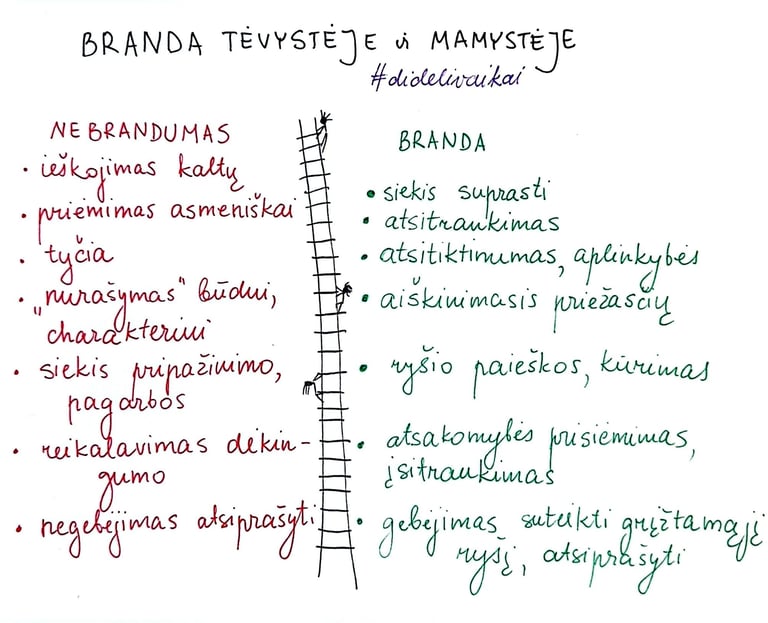 BRANDA TĖVYSTĖJE ir MAMYSTĖJE
#didelivaikai
NEBRANDUMAS
• ieškojimas kaltų
• priėmimas asmeniškai
• tyčia
• „nurašymas" būdui,
charakteriui
• siekis pripažinimo,
pagarbos
• reikalavimas dėkin-
gumo
• negebėjimas atsiprašyti
BRANDA
• siekis suprasti
• atsitraukimas
• atsitiktinumas, aplinkybės
• aiškinimasis priežasčių
• ryšio paieškos, kūrimas
• atsakomybės prisiėmimas,
įsitraukimas
• gebėjimas suteikti grįžtamąjį
ryšį, atsiprašyti